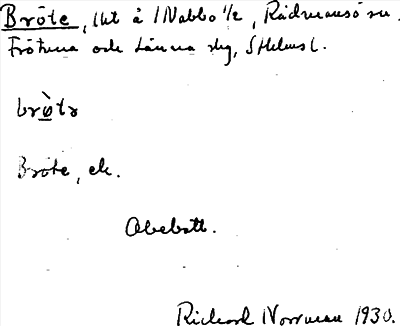 Bröte, lht å Nabbo 1/2, Rådmansö sn.
Frötuna och Länna skg, Sthlms l.
brö̀tɘ
Bröte, ek.
Obebott.
Rickard Norrman 1930.